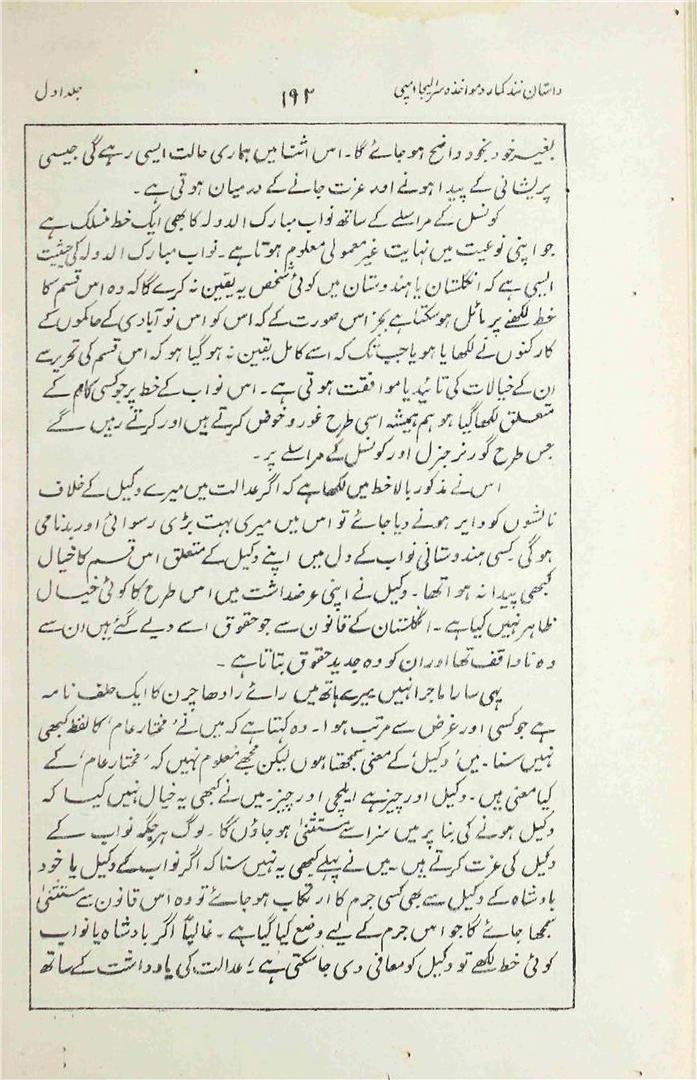 داستان نند کمار و مواخذہ سر الیجا امپی
۱۹۲
جلد اول
بغیر خود بخود واضح ہو جائے گا۔ اس اثنا میں ہماری حالت ایسی رہے گی جیسی
پریشانی کے پیدا ہونے اور عزت جانے کے درمیان ہوتی ہے۔
کونسل کے مراسلے کے ساتھ نواب مبارک الدولہ کا بھی ایک خط منسلک ہے
جو اپنی نوعیت میں نہایت غیر معمولی معلوم ہوتا ہے۔ نواب مبارک الدولہ کی حیثیت
ایسی ہے کہ انگلستان یا ہندوستان میں کوئی شخص یہ یقین نہ کرے گا کہ وہ اس قسم کا
خط لکھنے پر مائل ہو سکتا ہے بجز اس صورت کے کہ اس کو اس نو آبادی کے حاکموں کے
کارکنوں نے لکھایا ہو یا جب تک کہ اسے کامل یقین نہ ہو گیا ہو کہ اس قسم کی تحریر سے
ان کے خیالات کی تائید یا موافقت ہوتی ہے۔ اس نواب کے خط پر جو کسی کام کے
متعلق لکھا گیا ہو ہم ہمیشہ اسی طرح غور و خوض کرتے ہیں اور کرتے رہیں گے
جس طرح گورنر جنرل اور کونسل کے مراسلے پر۔
اس نے مذکور بالا خط میں لکھا ہے کہ اگر عدالت میں میرے وکیل کے خلاف
نالشوں کو دایر ہونے دیا جائے تو اس میں میری بہت بڑی رسوائی اور بدنامی
ہوگی۔ کسی ہندوستانی نواب کے دل میں اپنے وکیل کے متعلق اس قسم کا خیال
کبھی پیدا نہ ہوا تھا۔ وکیل نے اپنی عرضداشت میں اس طرح کا کوئی خیال
ظاہر نہیں کیا ہے۔ انگلستان کے قانون سے جو حقوق اسے دیے گئے ہیں ان سے
وہ ناواقف تھا اور ان کو وہ جدید حقوق بتاتا ہے۔
یہی سارا ماجرا نہیں میرے ہاتھ میں رائے رادھا چرن کا ایک حلف نامہ
ہے جو کسی اور غرض سے مرتب ہوا۔ وہ کہتا ہے کہ میں نے ’مختار عام‘ کا لفظ کبھی
نہیں سنا۔ میں ’وکیل‘ کے معنی سمجھتا ہوں لیکن مجھے معلوم نہیں کہ ’مختار عام‘ کے
کیا معنی ہیں۔ وکیل اور چیز ہے ایلچی اور چیز۔ میں نے کبھی یہ خیال نہیں کیا کہ
وکیل ہونے کی بنا پر میں سزا سے مستثنیٰ ہو جاؤں گا۔ لوگ ہر جگہ نواب کے
وکیل کی عزت کرتے ہیں۔ میں نے پہلے کبھی یہ نہیں سنا کہ اگر نواب کے وکیل یا خود
بادشاہ کے وکیل سے بھی کسی جرم کا ارتکاب ہو جائے تو وہ اس قانون سے مستثنیٰ
سمجھا جائے گا جو اس جرم کے لیے وضع کیا گیا ہے۔ غالباً اگر بادشاہ یا نواب
کوئی خط لکھے تو وکیل کو معافی دی جا سکتی ہے؛ عدالت کی یادداشت کے ساتھ